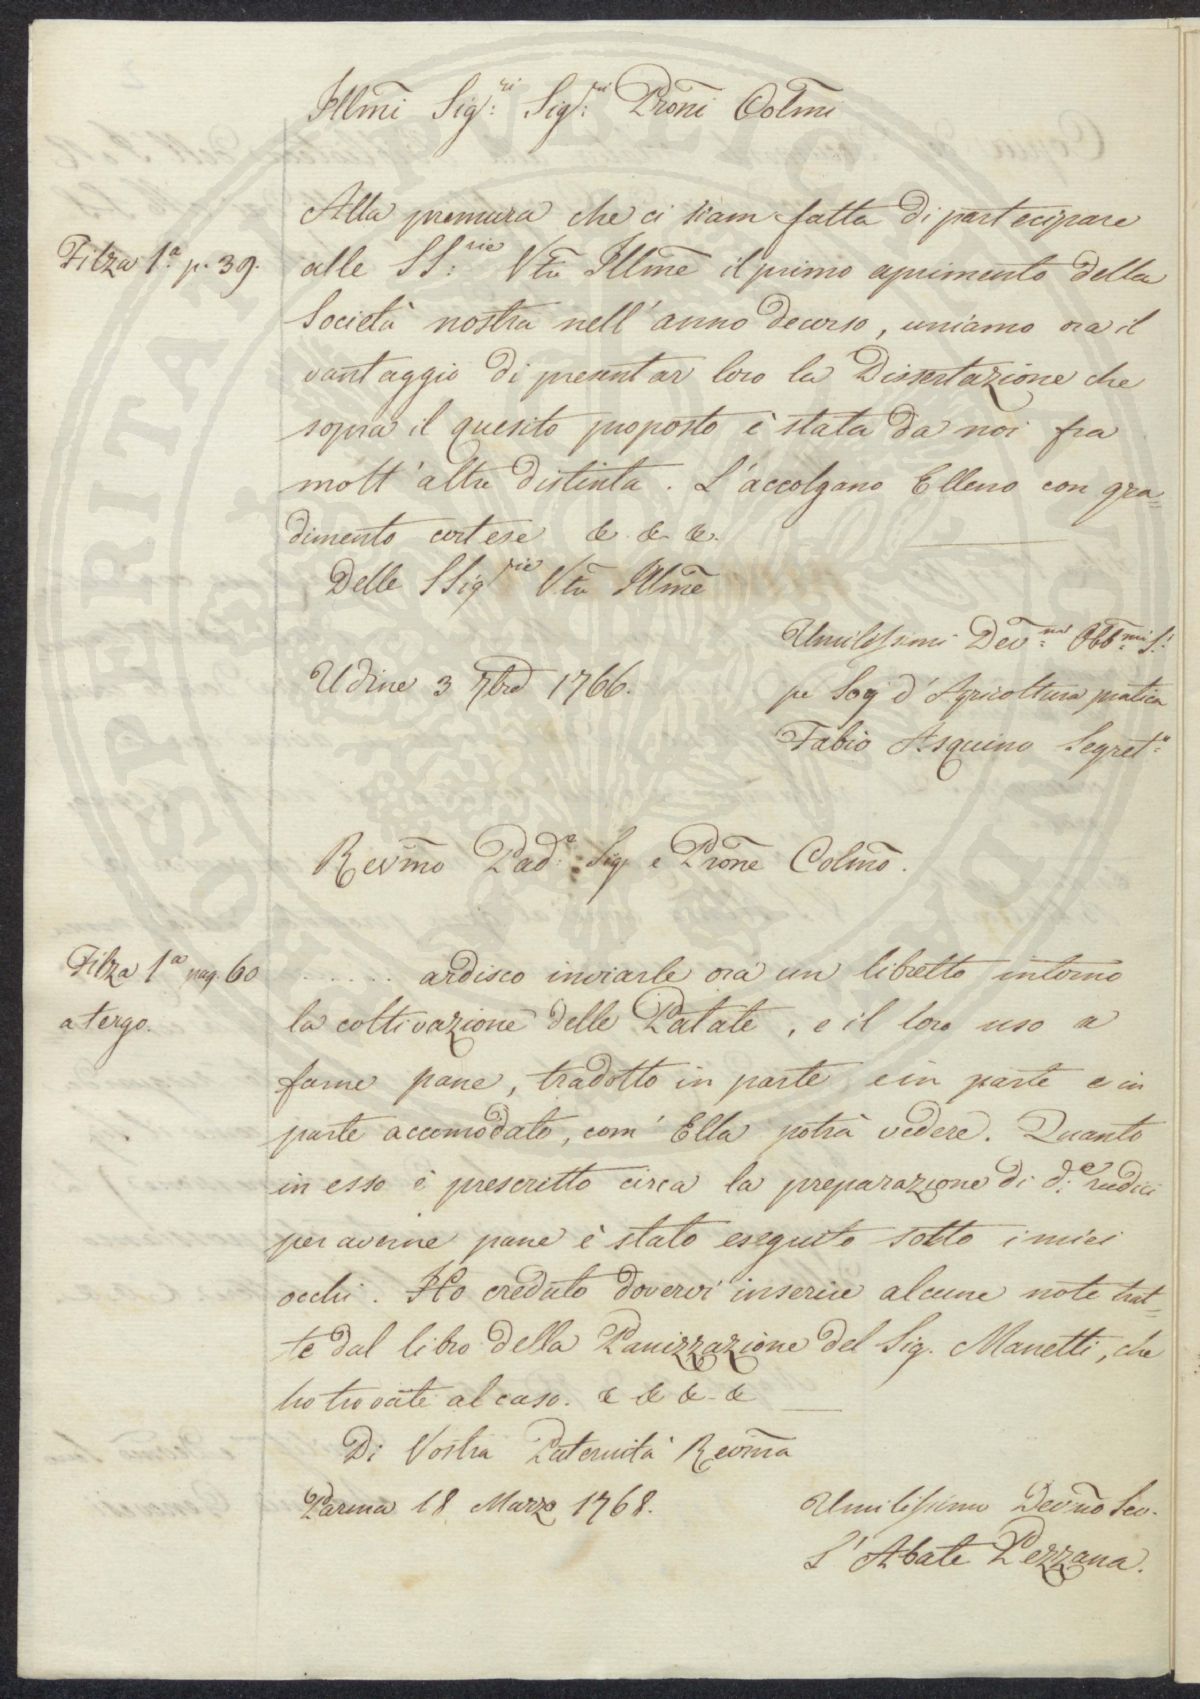 Illmi Sigri: Sigri: Proni Colmi
Alla premura che ci siam fatta di partecipare
Filza 1.a p. 39.
alle SS:rie Vre Illme il primo aprimento della
Società nostra nell'anno decorso, uniamo ora il
vantaggio di presentar loro la Dissertazione che
sopra il quesito proposto è stata da noi fra
molt'altre distinta. L'accolgano Elleno con gra=
dimento cortese &. &. &.
Delle SSigrie Vre Illme
Umilissimi Dev:mi Obb:mi S:i
Udine 3 7bre 1766.
pe Soci d'Agricoltura pratica
Fabio Asquino Segret:o
Revmo Pad:e Sig. e Prone Colmo.
Filza 1a pag. 60
..... ardisco inviarle ora un libretto intorno
a tergo.
la coltivazione delle Patate, e il loro uso a
farne pane, tradotto in parte, e in parte e in
parte accomodato, com' Ella potrà vedere. Quanto
in esso è prescritto circa la preparazione di d:e radici
per averne pane è stato eseguito sotto i miei
occhi. Ho creduto dovervi inserire alcune note trat=
te dal libro della Panizzazione del Sig. Manetti, che
ho trovate al caso. & & & &
Di Vostra Paternità Revma
Parma 18 Marzo 1768.
Umilissimo Devmo Sev.
L'Abate Pezzana.